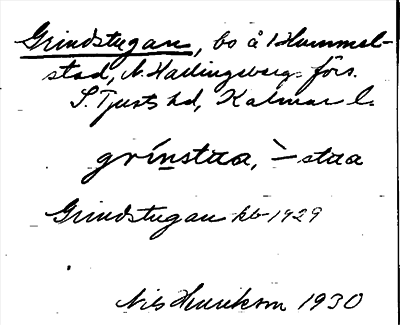 Grindstugan, bo å 1 Hummel-
stad, N. Hallingeberg förs.
S. Tjusts hd, Kalmar l.
grinstua, ´– stua
Grindstugan kb 1929
Nils Henrikson 1930